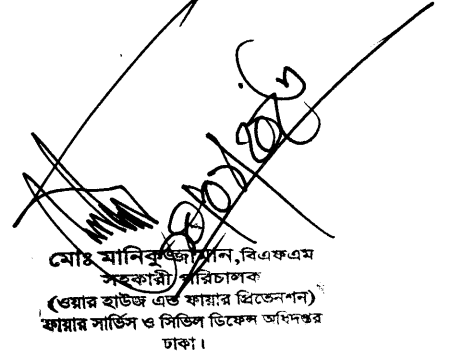 মোঃ মানিকুজ্জামান, বিএফএম
সহকারী পরিচালক
(ওয়ার হাউজ এন্ড ফায়ার প্রিভেনশন)
ফায়ার সার্ভিস ও সিভিল ডিফেন্স অধিদপ্তর
ঢাকা।